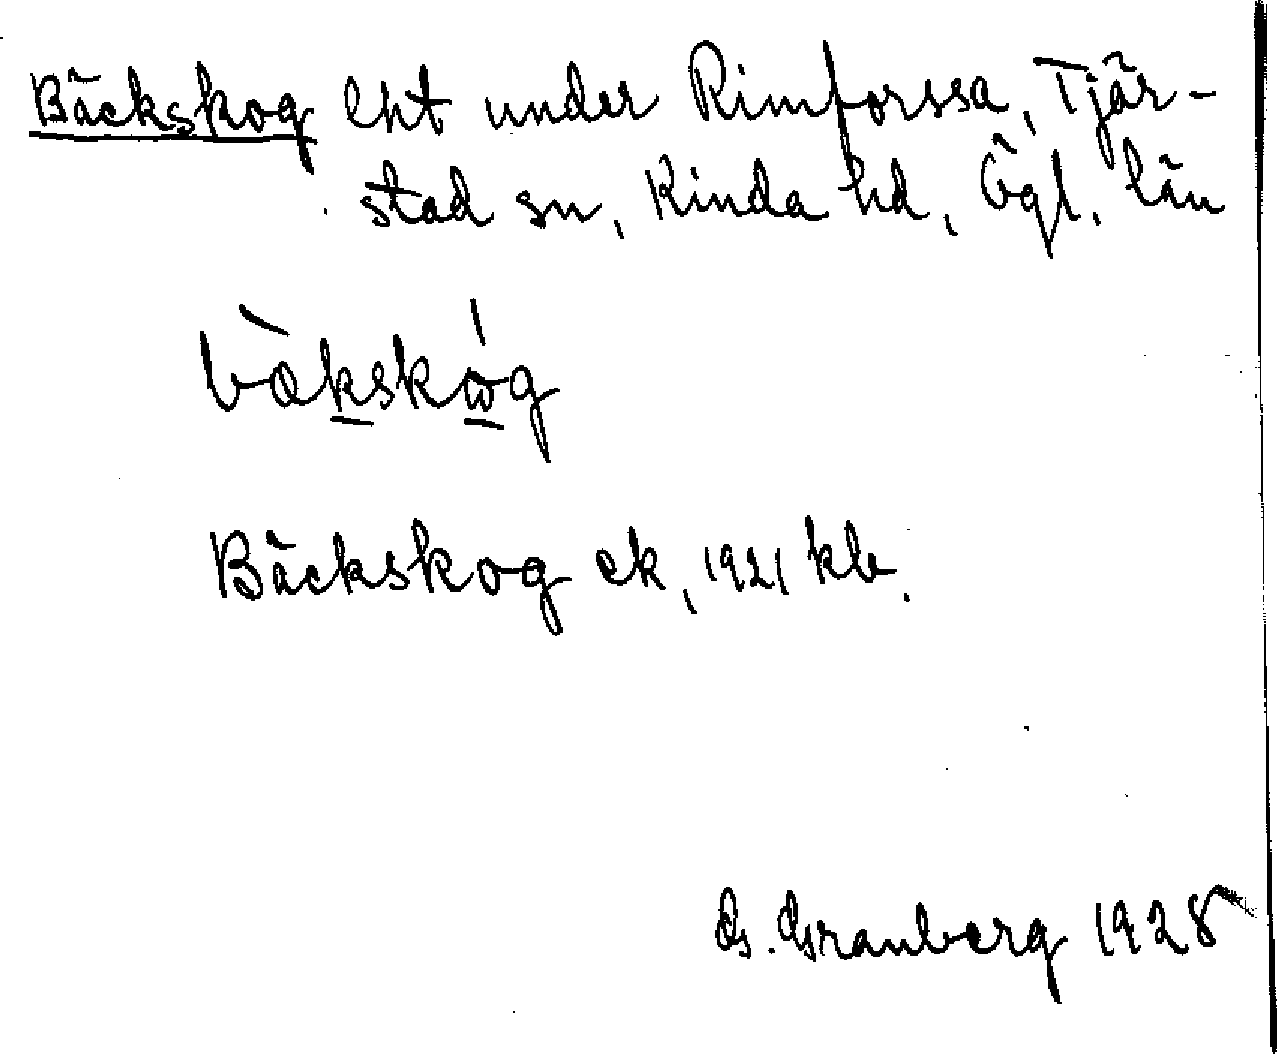 Bäckskog lht under Rimforssa, Tjär-
stad sn, Kinda hd, Ögl. län
bæ̀kskẃg
Bäckskog ek, 1921 kb.
G. Granberg 1928